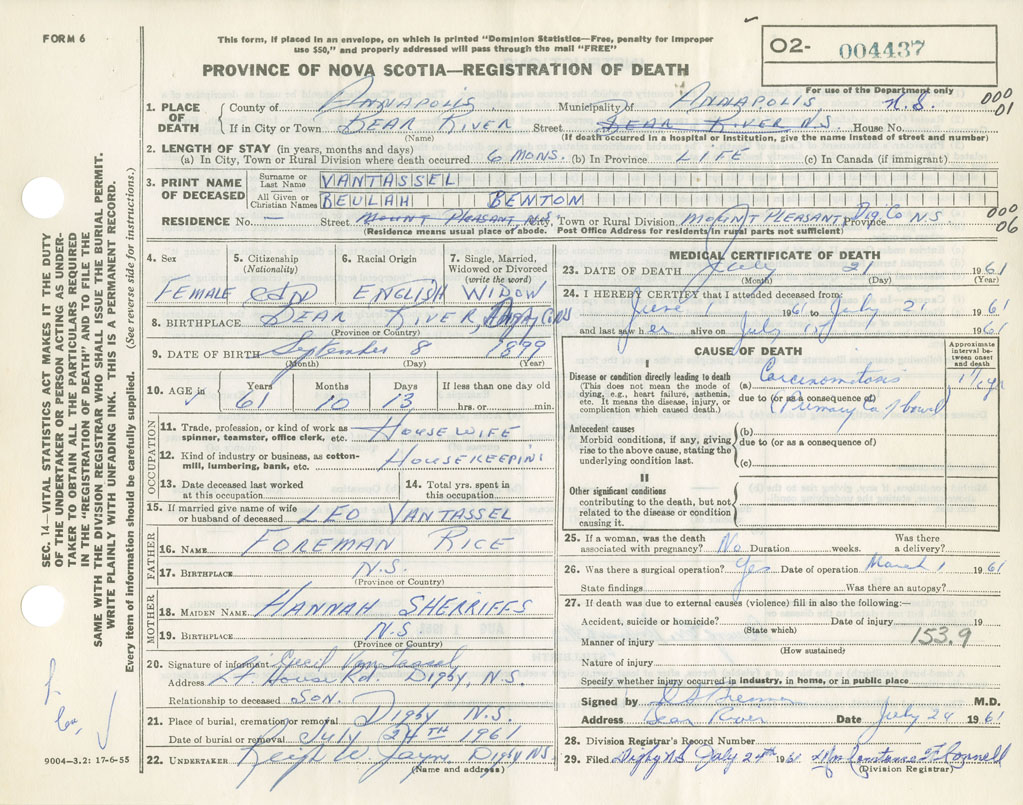 FORM 6
This form, if placed in an envelope, on which is printed "Dominion Statistics—Free, penalty for improper
use $50," and properly addressed will pass through the mail "FREE"
PROVINCE OF NOVA SCOTIA—REGISTRATION OF DEATH
02- 004437
For use of the Department only
1. PLACE OF DEATH County of ANNAPOLIS Municipality of ANNAPOLIS N.S. 000 01
If in City or Town BEAR RIVER Street BEAR RIVER N.S House No.
(Name) (If death occurred in a hospital or institution, give the name instead of street and number)
2. LENGTH OF STAY (in years, months and days)
(a) In City, Town or Rural Division where death occurred 6 MONS. (b) In Province LIFE (c) In Canada (if immigrant)
3. PRINT NAME OF DECEASED
Surname or Last Name VANTASSEL
All Given or Christian Names BEULAH BENTON
RESIDENCE No. — Street MOUNT PLEASANT, N.S. Town or Rural Division MOUNT PLEASANT Province Dig. Co N.S. 000 06
(Residence means usual place of abode. Post Office Address for residents in rural parts not sufficient)
4. Sex 5. Citizenship (Nationality) 6. Racial Origin 7. Single, Married, Widowed or Divorced (write the word)
FEMALE CDN ENGLISH WIDOW
8. BIRTHPLACE BEAR RIVER, Co NS
(Province or Country)
9. DATE OF BIRTH September 8 1899
(Month) (Day) (Year)
10. AGE in Years Months Days If less than one day old
61 10 13 hrs. or min.
OCCUPATION
11. Trade, profession, or kind of work as spinner, teamster, office clerk, etc. HOUSEWIFE
12. Kind of industry or business, as cotton-mill, lumbering, bank, etc. HOUSEKEEPING
13. Date deceased last worked at this occupation
14. Total yrs. spent in this occupation
15. If married give name of wife or husband of deceased LEO VANTASSEL
FATHER
16. NAME FOREMAN RICE
17. BIRTHPLACE N.S.
(Province or Country)
MOTHER
18. MAIDEN NAME HANNAH SHERRIFFS
19. BIRTHPLACE N.S
(Province or Country)
20. Signature of informant Cecil VanTassel
Address Lt House Rd. Digby, N.S.
Relationship to deceased SON.
21. Place of burial, cremation or removal Digby N.S.
Date of burial or removal July 24TH 1961
22. UNDERTAKER Digby NS.
(Name and address)
MEDICAL CERTIFICATE OF DEATH
23. DATE OF DEATH July 21 1961
(Month) (Day) (Year)
24. I HEREBY CERTIFY that I attended deceased from:
June 1 1961 to July 21 1961
and last saw her alive on July 1961
CAUSE OF DEATH
Approximate interval between onset and death
I
Disease or condition directly leading to death
(This does not mean the mode of dying, e.g., heart failure, asthenia, etc. It means the disease, injury, or complication which caused death.)
(a) Carcinomatosis 1½ yr
due to (or as a consequence of)
Primary Ca of bowel
Antecedent causes
Morbid conditions, if any, giving rise to the above cause, stating the underlying condition last.
(b)
due to (or as a consequence of)
(c)
II
Other significant conditions
contributing to the death, but not related to the disease or condition causing it.
25. If a woman, was the death associated with pregnancy? No Duration weeks. Was there a delivery?
26. Was there a surgical operation? Yes Date of operation March 1 1961
State findings Was there an autopsy?
27. If death was due to external causes (violence) fill in also the following:—
Accident, suicide or homicide? Date of injury 19
(State which)
Manner of injury 153.9
(How sustained)
Nature of injury
Specify whether injury occurred in industry, in home, or in public place
Signed by M.D.
Address Bear River Date July 24 1961
28. Division Registrar's Record Number
29. Filed Digby NS July 24th 1961 Mrs Constance F Connell
(Division Registrar)
SEC. 14—VITAL STATISTICS ACT MAKES IT THE DUTY
OF THE UNDERTAKER OR PERSON ACTING AS UNDER-
TAKER TO OBTAIN ALL THE PARTICULARS REQUIRED
IN THE "REGISTRATION OF DEATH" AND TO FILE THE
SAME WITH THE DIVISION REGISTRAR WHO SHALL ISSUE THE BURIAL PERMIT.
WRITE PLAINLY WITH UNFADING INK. THIS IS A PERMANENT RECORD.
Every item of information should be carefully supplied. (See reverse side for instructions.)
9004—3.2: 17-6-55